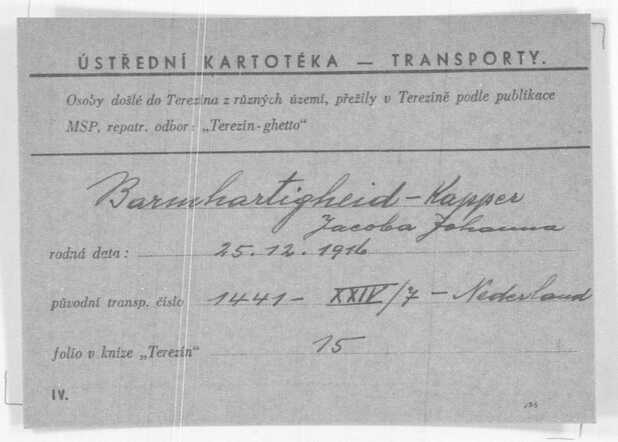 ÚSTŘEDNÍ KARTOTÉKA — TRANSPORTY.
Osoby došlé do Terezína z různých území, přežily v Terezíně podle publikace
MSP, repatr. odbor: „Terezín-ghetto"
Barmhartigheid-Kapper
Jacoba Johanna
rodná data: 25.12.1916
původní transp. číslo 1441- XXIV/7 - Nederland
folio v knize „Terezín" 15
IV.